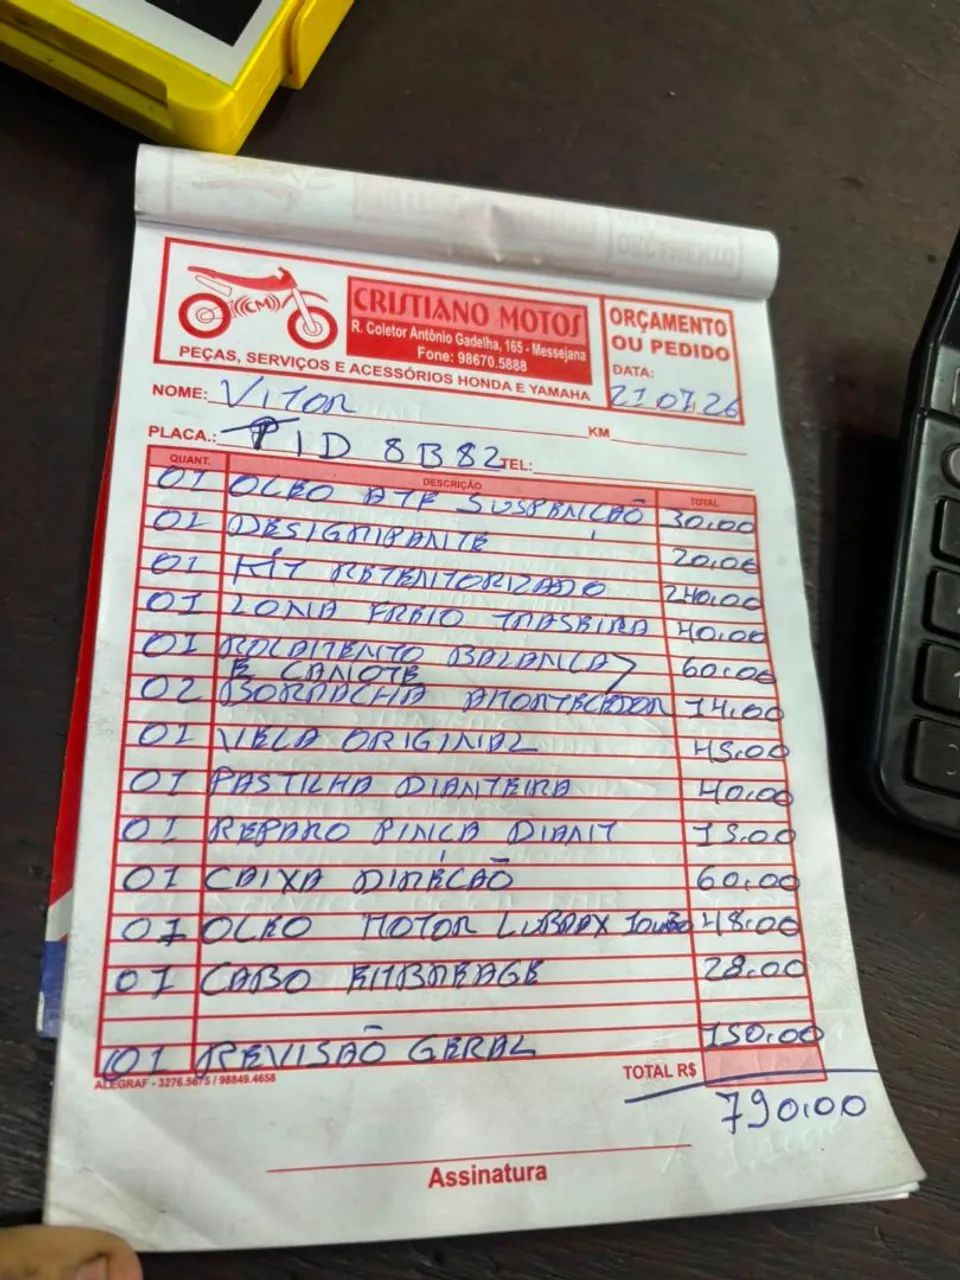 ORÇAMENTO
CM
CRISTIANO MOTOS
R. Coletor Antônio Gadelha, 165 - Messejana
Fone: 98670.5888
PEÇAS, SERVIÇOS E ACESSÓRIOS HONDA E YAMAHA
ORÇAMENTO
OU PEDIDO
DATA:
21 07.26
NOME: VITOR
KM
PLACA.: PID 8B82 TEL:
QUANT. DESCRIÇÃO TOTAL
01 OLEO ATF SUSPENÇÃO 30.00
01 DESIGRIPANTE 20.00
01 KIT RETENTORIZADO 240.00
01 LONA FREIO TRASEIRA 40.00
01 ROLAMENTO BALANCA 60.00
E CANOTE
02 BORRACHA AMORTECEDOR 14.00
01 VELA ORIGINAL 45.00
01 PASTILHA DIANTEIRA 40.00
01 REPARO PINCA DIANT 15.00
01 CAIXA DIREÇÃO 60.00
01 OLEO MOTOR LUBRAX 10W30 48.00
01 CABO EMBREAGE 28.00
01 REVISÃO GERAL 150.00
ALEGRAF - 3276.5675 / 98849.4658
TOTAL R$ 790.00
Assinatura